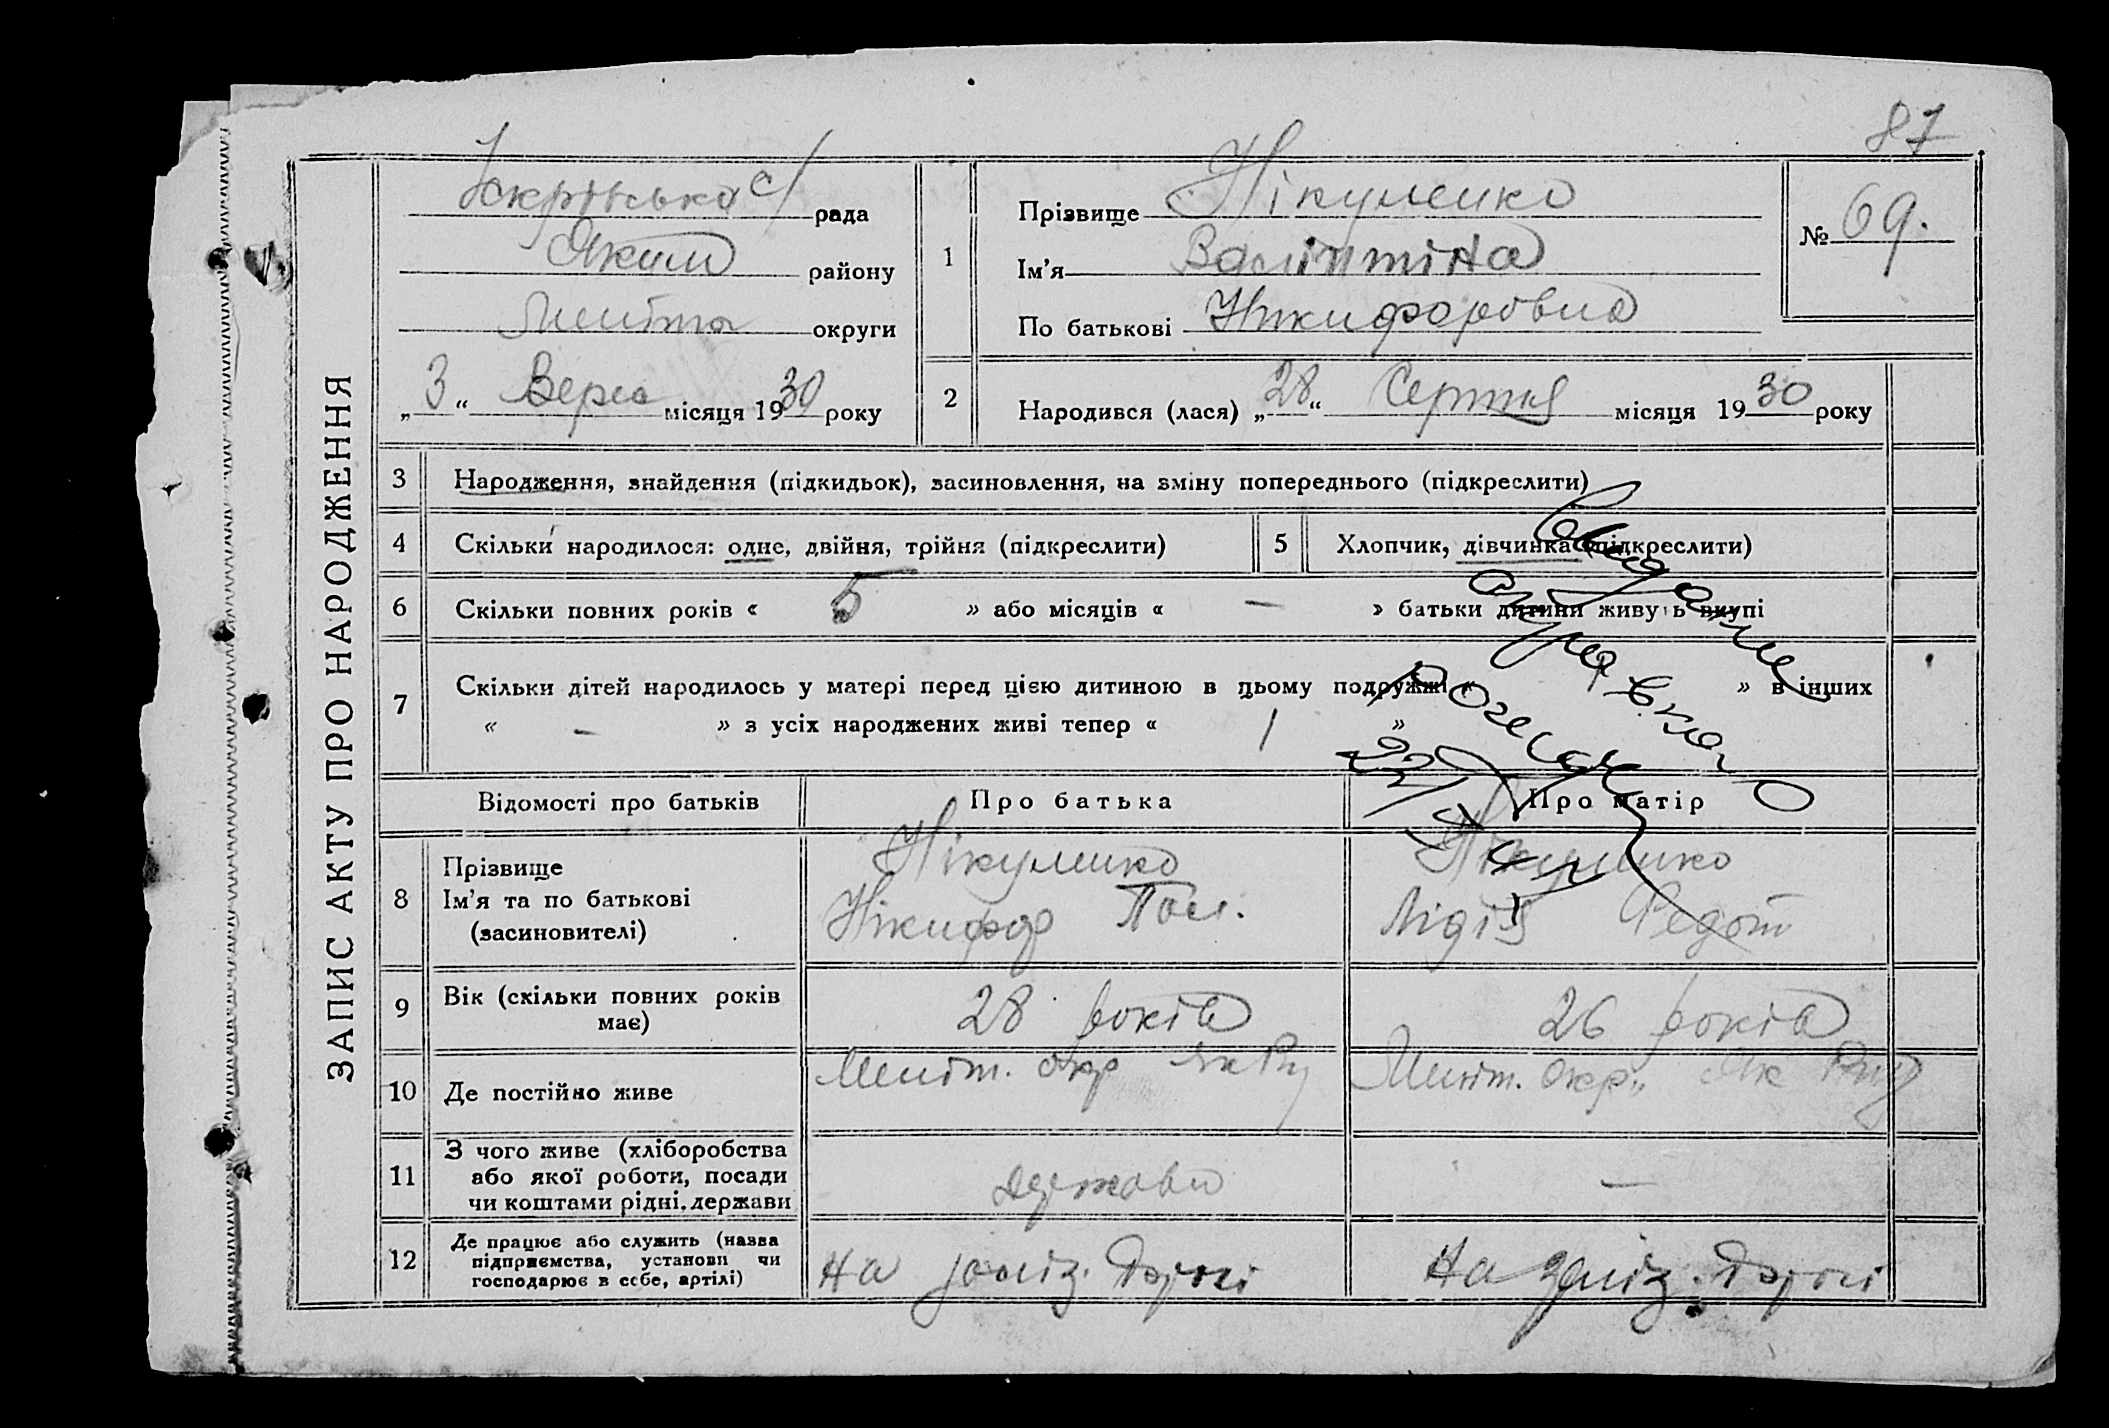 87
рада
Яким району
округи
„3“ Верес місяця 1930 року
1
Прізвище Нікуленко
Ім’я Валінтіна
По батькові Никифоровна
№ 69.
2
Народився (лася) „28“ Серпня місяця 1930 року
ЗАПИС АКТУ ПРО НАРОДЖЕННЯ
3 Народження, знайдення (підкидьок), засиновлення, на зміну попереднього (підкреслити)
4 Скільки народилося: одне, двійня, трійня (підкреслити)
5 Хлопчик, дівчинка (підкреслити)
6 Скільки повних років « 5 » або місяців « — » батьки дитини живуть вкупі
7 Скільки дітей народилось у матері перед цією дитиною в цьому подружжі « » в інших
« — » з усіх народжених живі тепер « 1 »
справка
Відомості про батьків Про батька Про матір
8 Прізвище
Ім’я та по батькові
(засиновителі)
Нікуленко
Никифор
Нікуленко
Лідія Федот
9 Вік (скільки повних років
має)
28 років
26 років
10 Де постійно живе
Меліт. Окр Як
Меліт. Окр. Як
11 З чого живе (хліборобства
або якої роботи, посади
чи коштами рідні, держави
держави
—
12 Де працює або служить (назва
підприємства, установи чи
господарює в себе, артілі)
На заліз. Дорозі
На заліз. Дорозі